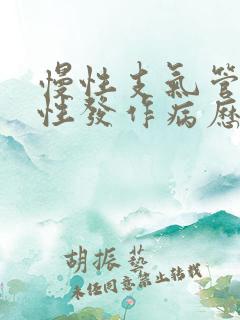 慢性支氣管
性發作病歷
胡振藝
未经同意禁止转载